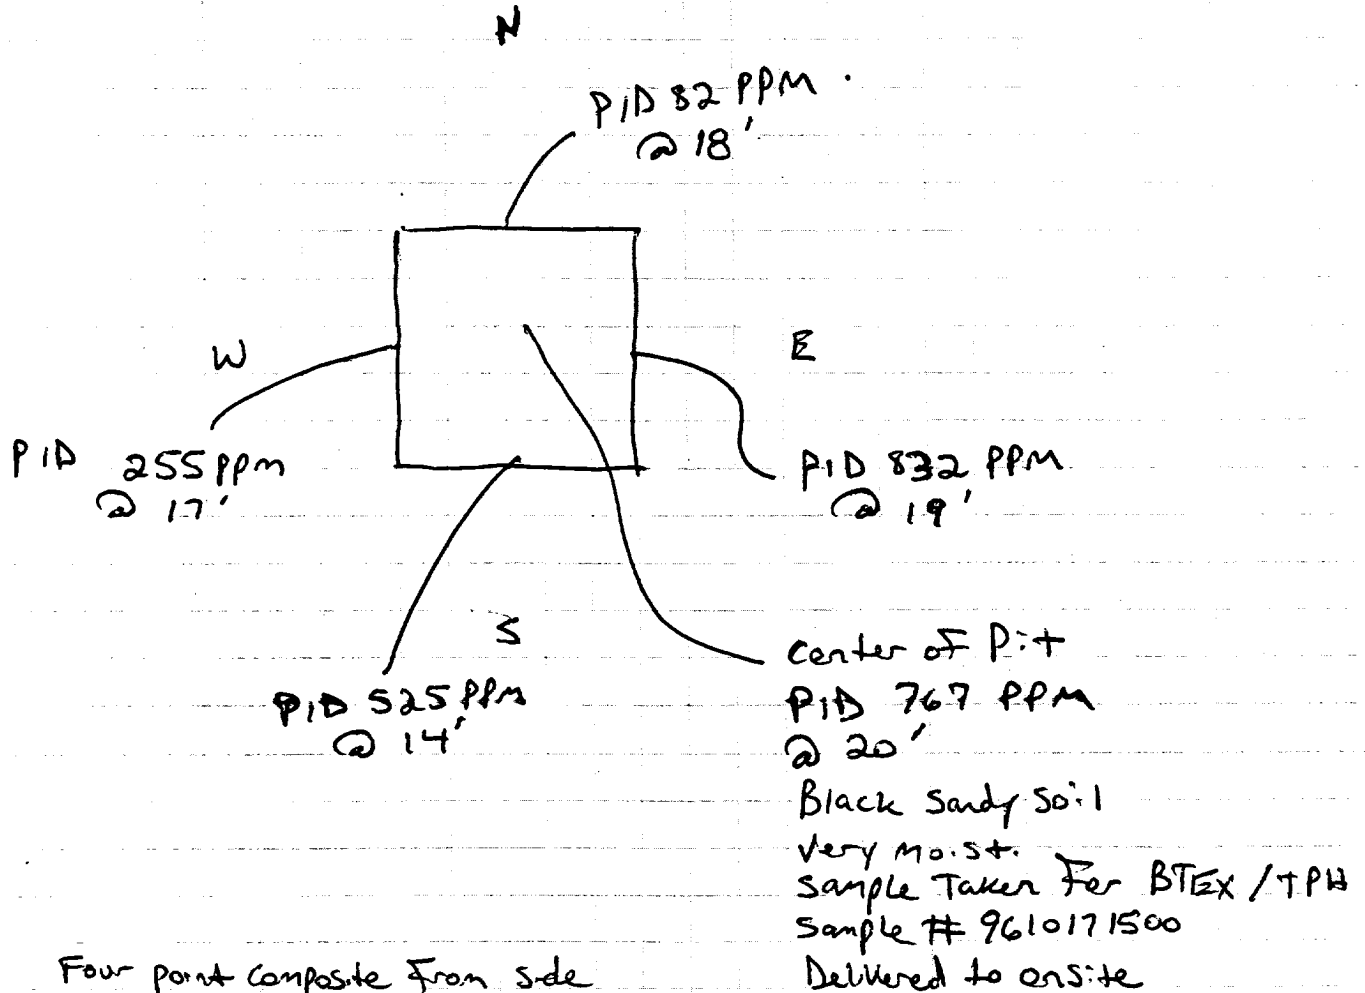 N
PID 82 PPM
@ 18'
W
E
PID 255 PPM
@ 17'
PID 832 PPM
@ 19'
S
PID 525 PPM
@ 14'
Center of Pit
PID 767 PPM
@ 20'
Black Sandy Soil
Very Moist.
Sample Taken For BTEX / TPH
Sample # 9610171500
Delivered to onsite
Four point composite From side